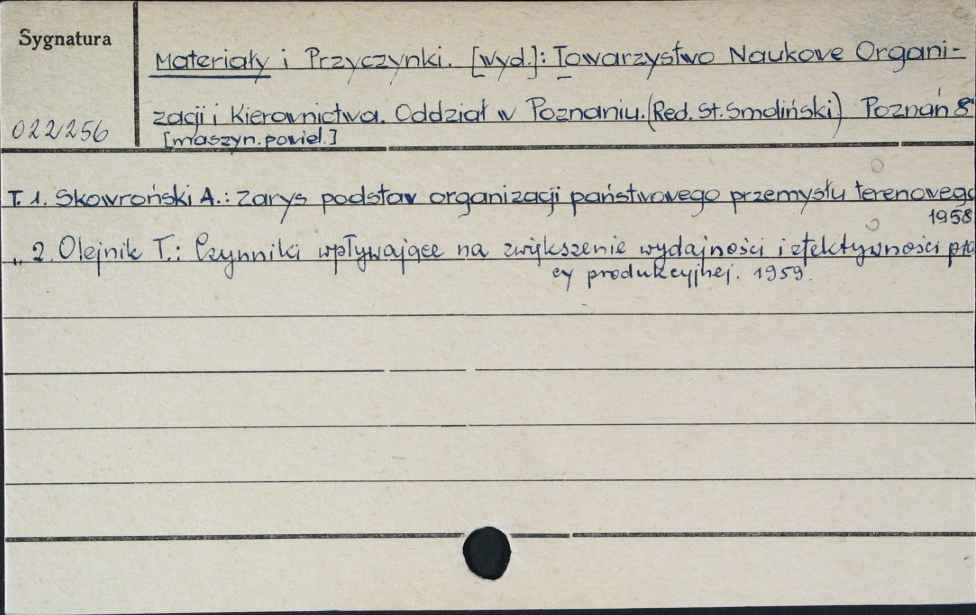 Sygnatura
Materiały i Przyczynki. [wyd.]: Towarzystwo Naukowe Organi-
zacji i Kierownictwa. Oddział w Poznaniu. (Red. St. Smoliński) Poznań 8°
022256
[maszyn. powiel.]
T. 1. Skowroński A.: Zarys podstaw organizacji państwowego przemysłu terenowego
1958
„ 2. Olejnik T.: Czynniki wpływające na zwiększenie wydajności i efektywności pra
cy produkcyjnej. 1959.